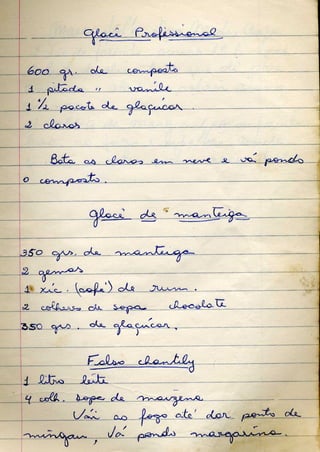 Glacê Professional
600 gr. de composto
1 pitada " vanile
1 1/2 pacote de glaçúcar
2 claras
Bata as claras em neve e vá pondo
o composto.
Glacê de manteiga
350 grs. de manteiga
2 gemas
1 xíc. (café) de rum.
2 colheres de sopa chocolate
350 grs. de glaçúcar.
Falso chantily
1 litro leite
4 colh. sopa de maizena
Vai ao fogo até dar ponto de
mingau, vá pondo margarina.